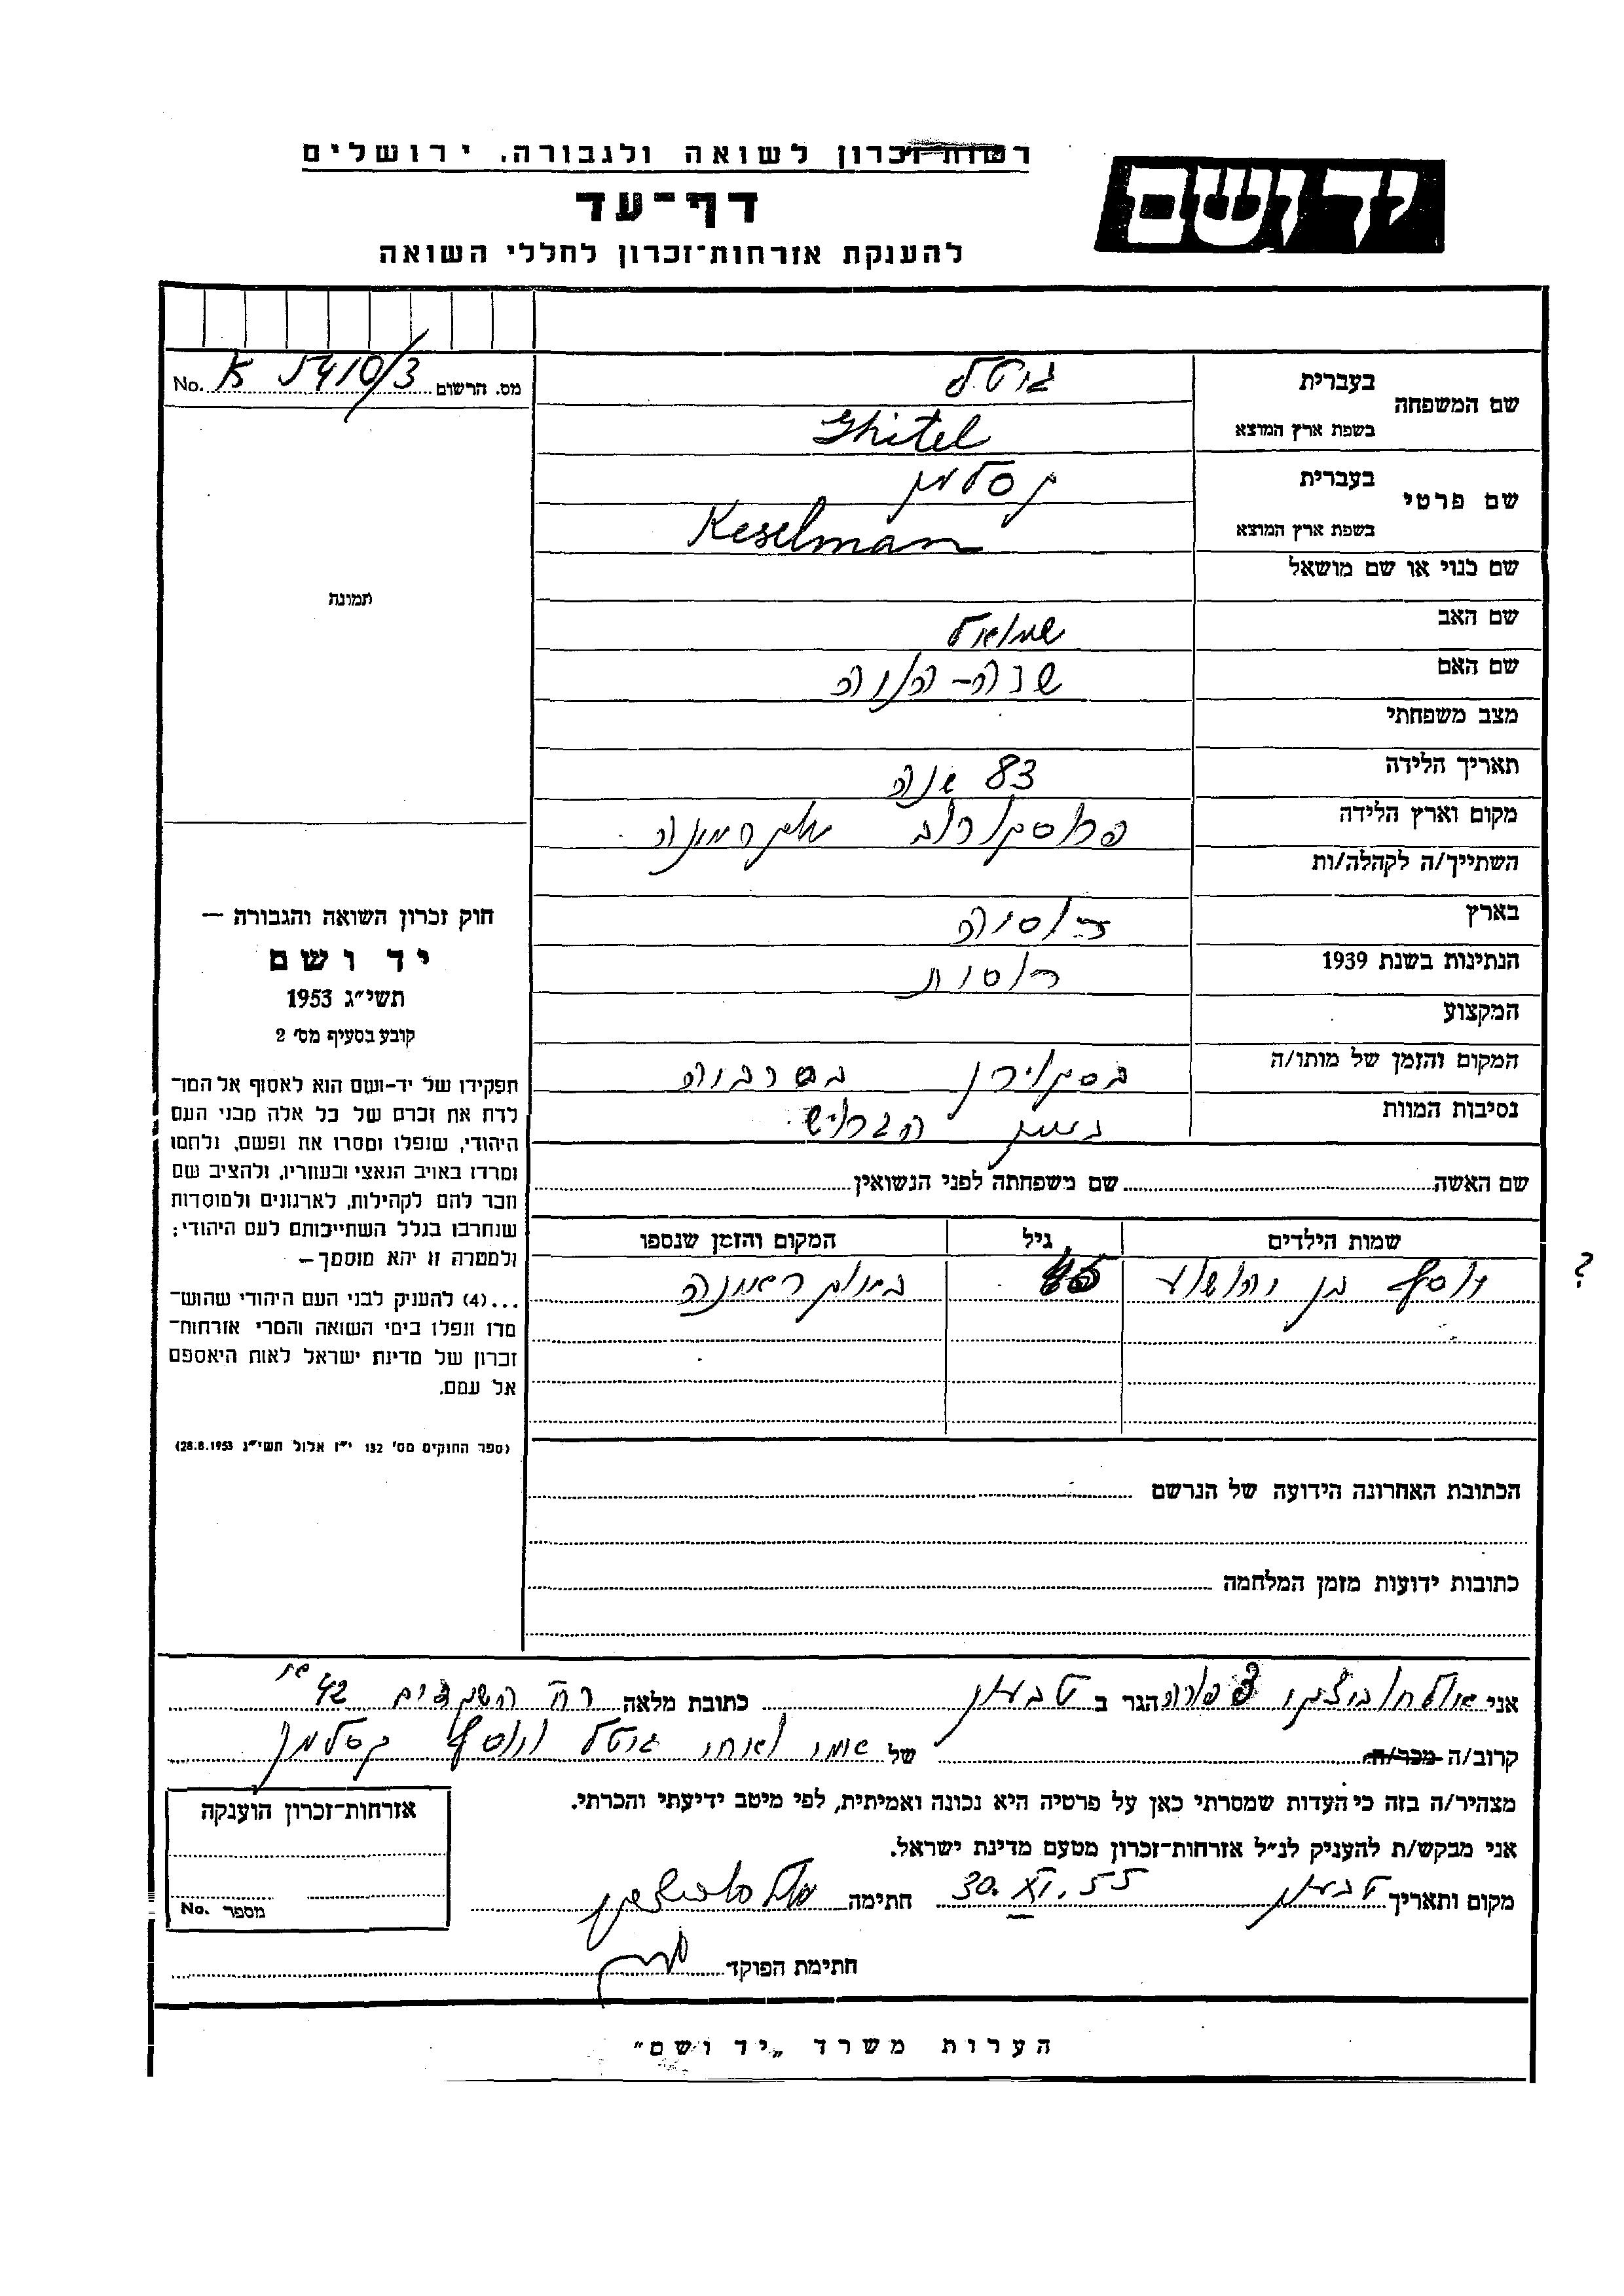 יד ושם
רשות זכרון לשואה ולגבורה, ירושלים
דף-עד
להענקת אזרחות-זכרון לחללי השואה
מס. הרשום K 5410/3 No.
שם המשפחה
בעברית גיטל
בשפת ארץ המוצא Ghitel
שם פרטי
בעברית קסלמן
בשפת ארץ המוצא Keselman
שם כנוי או שם מושאל
שם האב שמואל
שם האם
מצב משפחתי
תאריך הלידה 83 שנה
מקום וארץ הלידה פרוסקורוב אוקראינה
השתייך/ה לקהלה/ות
בארץ רוסיה
הנתינות בשנת 1939 רוסית
המקצוע
המקום והזמן של מותו/ה בסרביה
נסיבות המוות בזמן הגרוש
שם האשה שם משפחתה לפני הנשואין
שמות הילדים גיל המקום והזמן שנספו
יוסף בן יהושע באוקראינה ?
הכתובת האחרונה הידועה של הנרשם
כתובות ידועות מזמן המלחמה
תמונה
חוק זכרון השואה והגבורה —
יד ושם
תשי״ג 1953
קובע בסעיף מס׳ 2
תפקידו של יד-ושם הוא לאסוף אל המו־
לדת את זכרם של כל אלה מבני העם
היהודי, שנפלו ומסרו את נפשם, נלחמו
ומרדו באויב הנאצי ובעוזריו, ולהציב שם
וזכר להם לקהילות, לארגונים ולמוסדות
שנחרבו בגלל השתייכותם לעם היהודי;
ולמטרה זו יהא מוסמך—
...(4) להעניק לבני העם היהודי שהוש־
מדו ונפלו בימי השואה והמרי אזרחות־
זכרון של מדינת ישראל לאות היאספם
אל עמם.
(ספר החוקים מס׳ 132 י״ז אלול תשי״ג 28.8.1953)
אני צפורה הגר ב טבעון כתובת מלאה רח׳ השקדים 42
קרוב/ה מכר/ה של אמי ואחי גיטל ויוסף קסלמן
מצהיר/ה בזה כי העדות שמסרתי כאן על פרטיה היא נכונה ואמיתית, לפי מיטב ידיעתי והכרתי.
אני מבקש/ת להעניק לנ״ל אזרחות-זכרון מטעם מדינת ישראל.
מקום ותאריך טבעון 30.XI.55 חתימה
חתימת הפוקד
אזרחות-זכרון הוענקה
מספר No.
הערות משרד „יד ושם״